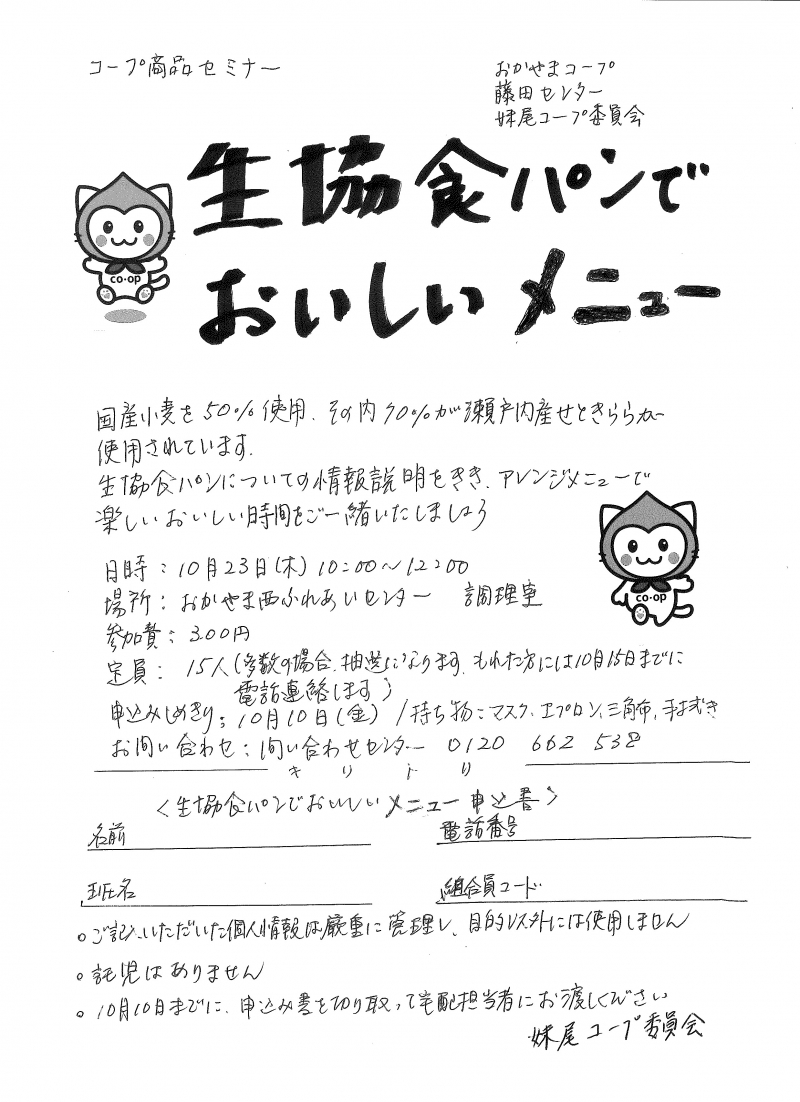 コープ商品セミナー
おかやまコープ
藤田センター
妹尾コープ委員会
生協食パンで
おいしいメニュー
co・op
国産小麦を50%使用、その内70%が瀬戸内産せときららが
使用されています。
生協食パンについての情報説明をきき、アレンジメニューで
楽しいおいしい時間をご一緒いたしましょう
co・op
日時：10月23日(木) 10:00～12:00
場所：おかやま西ふれあいセンター 調理室
参加費：300円
定員：15人(多数の場合、抽選になります。もれた方には10月15日までに
電話連絡します)
申込みしめきり：10月10日(金) /持ち物：マスク、エプロン、三角布、手ふき
お問い合わせ：問い合わせセンター 0120 662 538
きりとり
〈生協食パンでおいしいメニュー申込書〉
名前 電話番号
班名 組合員コード
○ご記入いただいた個人情報は厳重に管理し、目的以外には使用しません
○託児はありません
○10月10日までに、申込み書を切り取って宅配担当者にお渡しください
妹尾コープ委員会